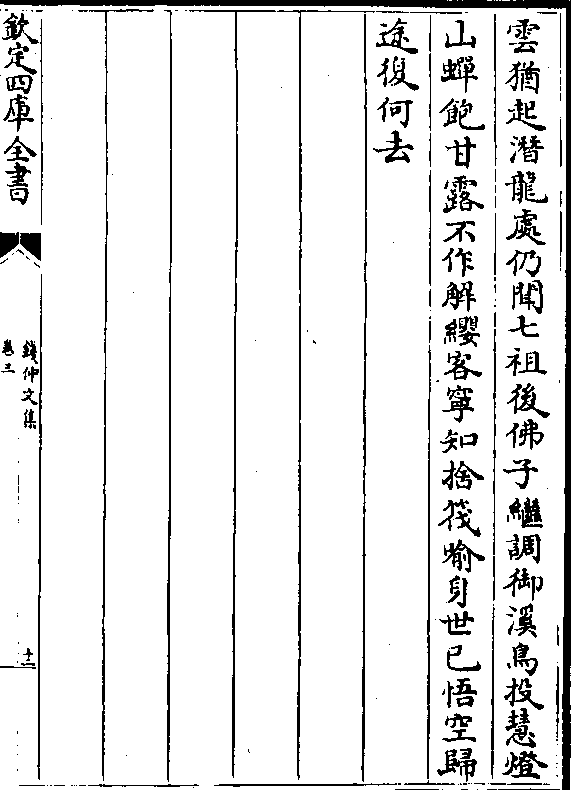 雲猶起潛龍處仍聞七祖後佛子繼調御溪鳥投慧燈
山蟬飽甘露不作解纓客寧知捨筏喻身世已悟空歸
途復何去
欽定四庫全書
錢仲文集
卷三
十二